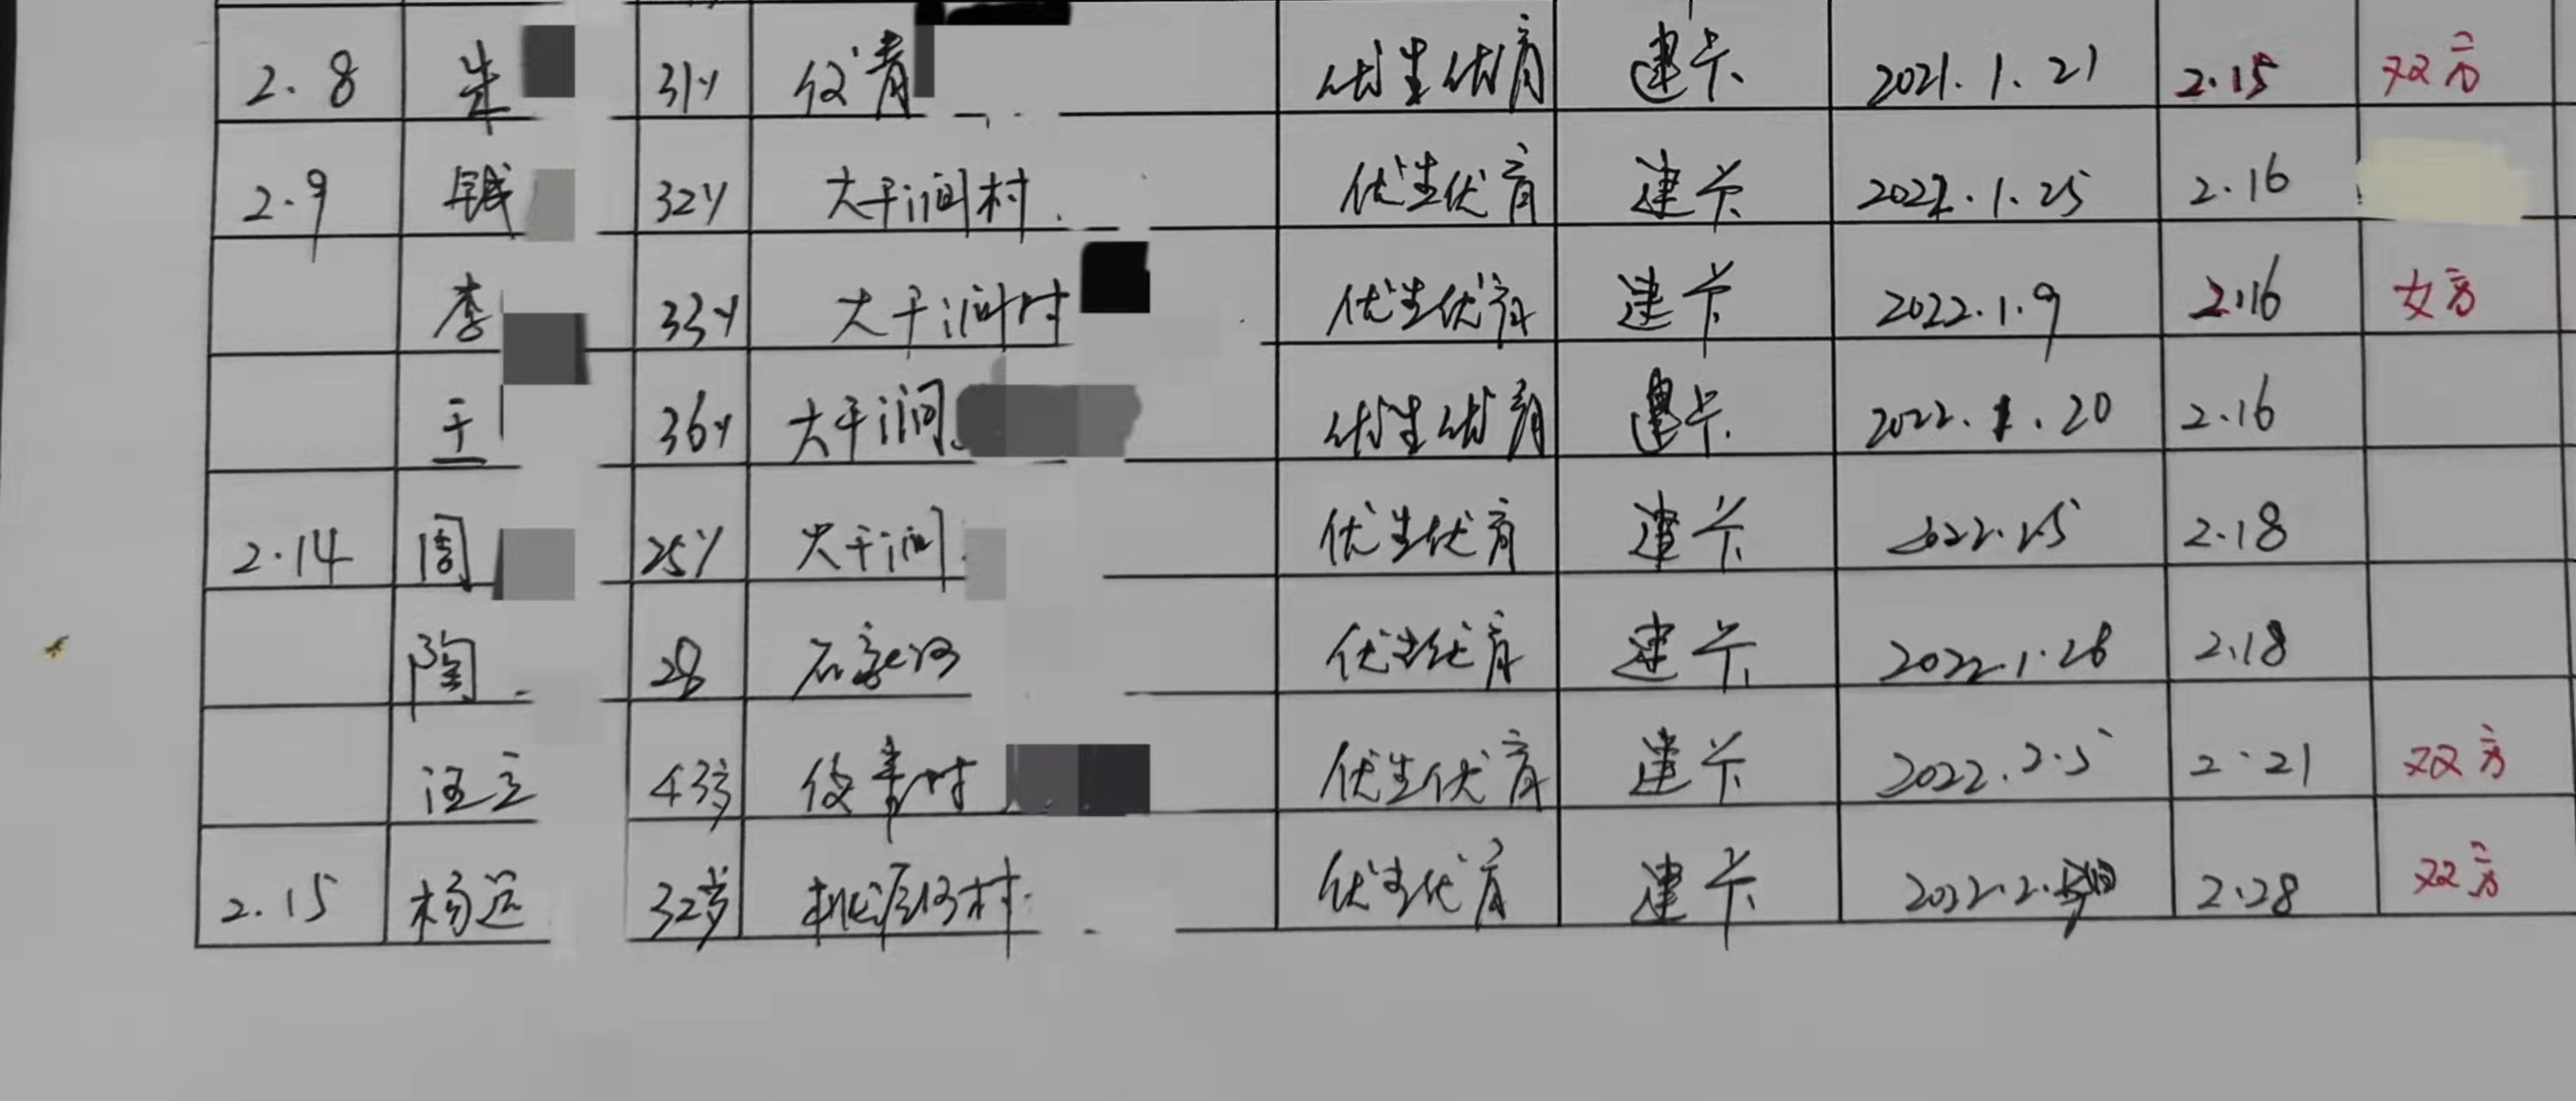 2.8 朱 31y 仪青 优生优育 建卡 2021.1.21 2.15 双方
2.9 钱 32y 大干涧村 优生优育 建卡 2022.1.25 2.16
李 33y 大干涧村 优生优育 建卡 2022.1.9 2.16 女方
王 36y 大干涧 优生优育 建卡 2022.1.20 2.16
2.14 周 25y 大干涧 优生优育 建卡 2022.1.5 2.18
陶 28 优生优育 建卡 2022.1.26 2.18
汪立 43岁 优生优育 建卡 2022.2.5 2.21 双方
2.15 杨远 32岁 桃源河村 优生优育 建卡 2022.2. 2.28 双方